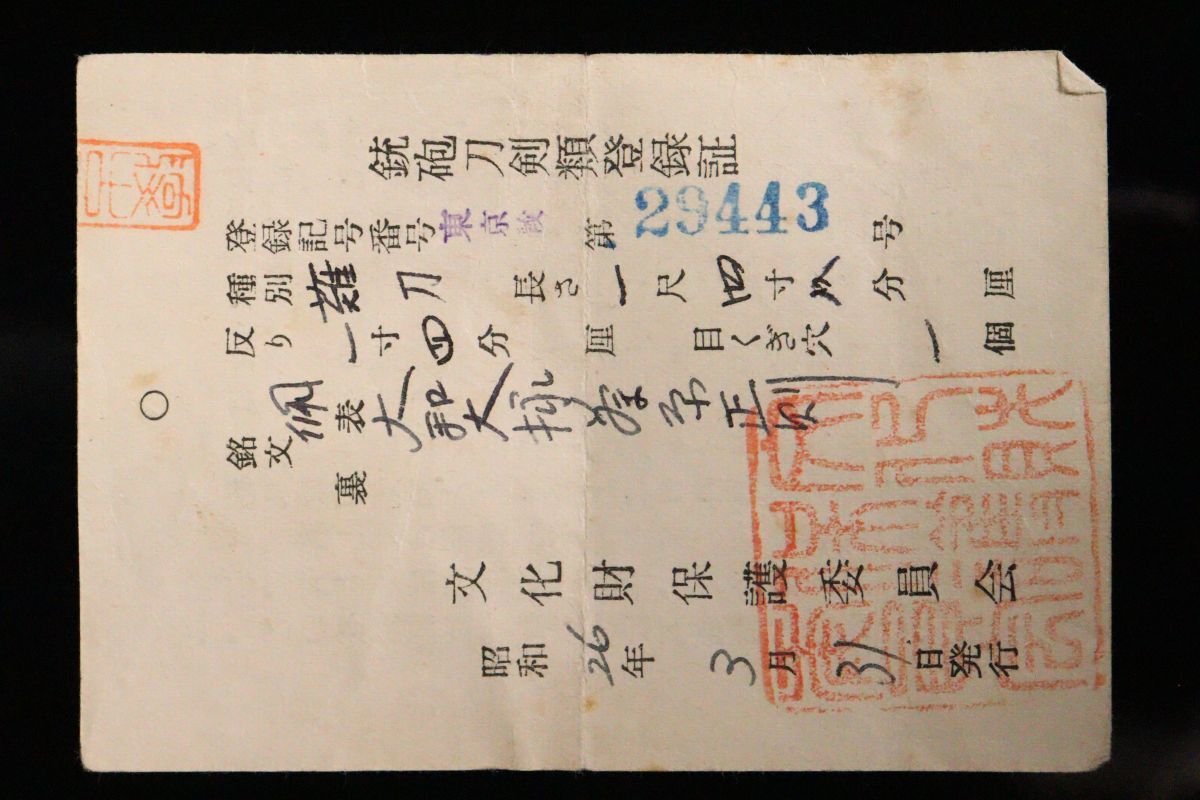 銃砲刀剣類登録証
登録記号番号 東京 第 29443 号
種別 薙刀 長さ 一尺四寸 分 厘
反り 一寸四分 厘 目くぎ穴 一 個
銘文 佩表 大和大掾藤原正則
裏
文化財保護委員会
昭和26年3月31日発行